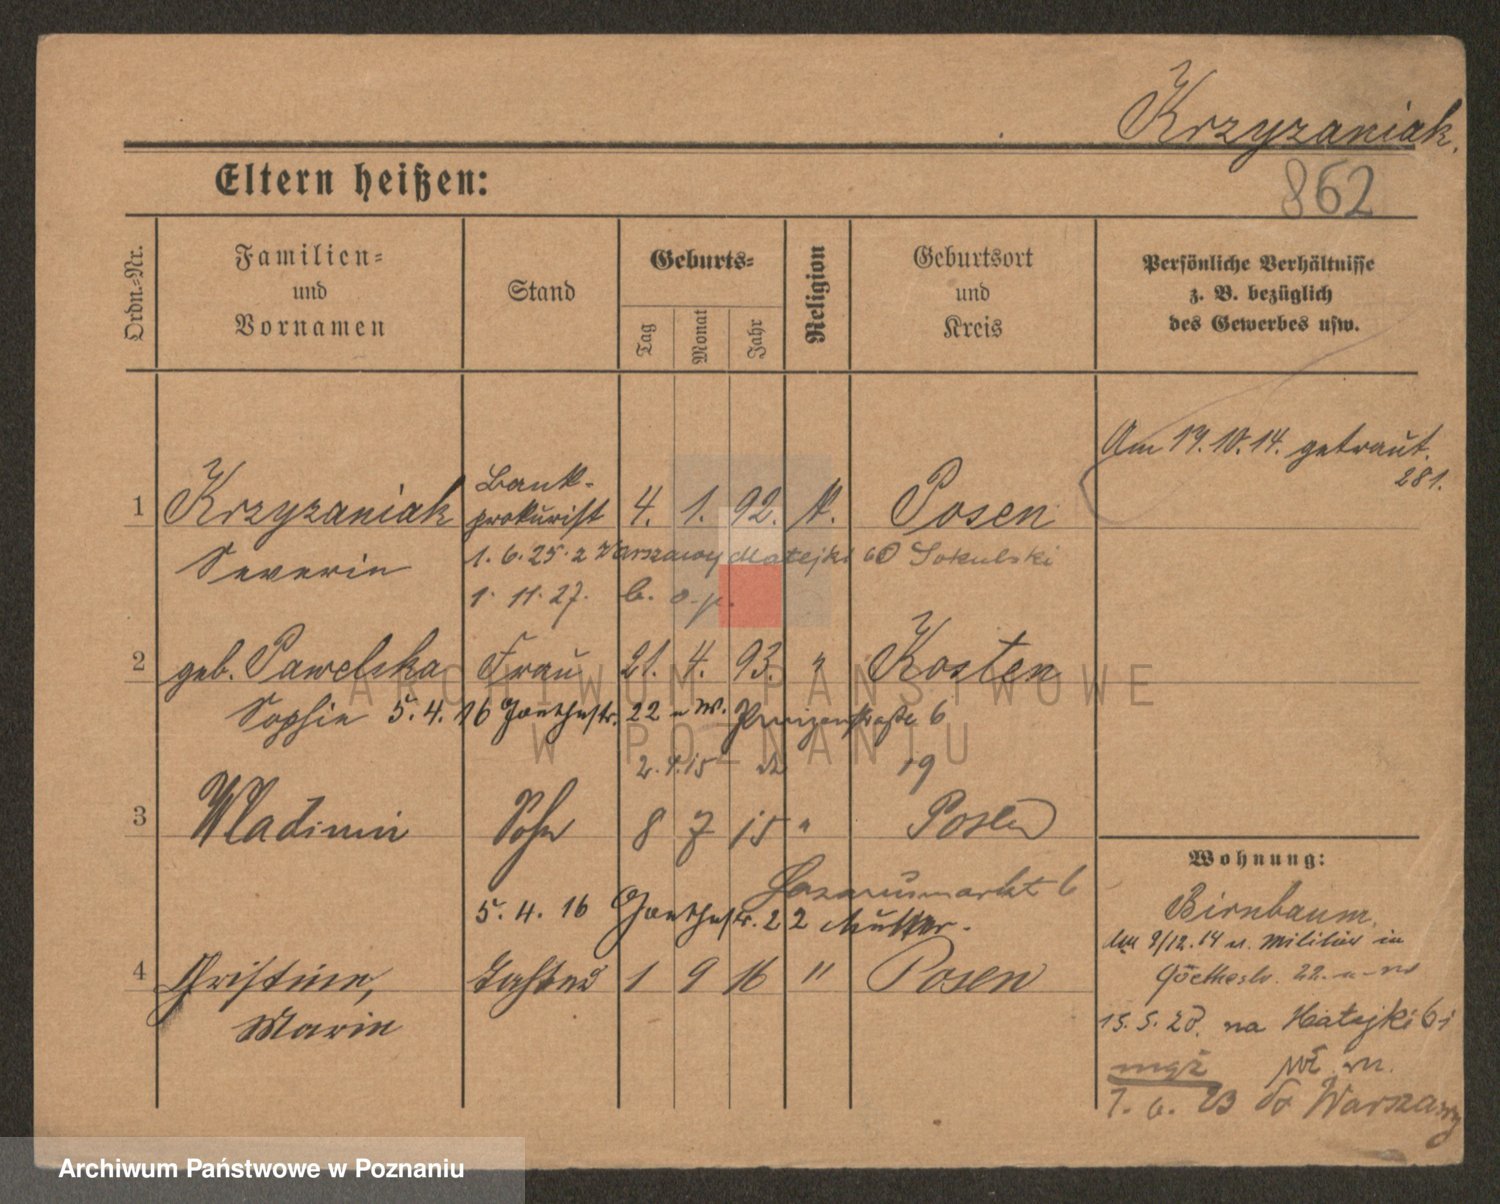 Krzyzaniak.
862
Eltern heißen:
Ordn.-Nr.
Familien-
und
Vornamen
Stand
Geburts-
Tag
Monat
Jahr
Religion
Geburtsort
und
Kreis
Persönliche Verhältnisse
z. B. bezüglich
des Gewerbes usw.
Am 19.10.14. getraut.
281.
Bank-
1 Krzyzaniak prokurist 4. 1. 92. k. Posen
Severin 1. 6. 25. z Warszawy Matejki 60 Sokulski
1. 11. 27. b. o.p.
2 geb. Pawelska Frau 21. 4. 93. " Kosten
Sophie 5. 4. 16 Goethestr. 22 u W. Prinzenstraße 6
2. 4. 15 19
3 Wladimir Sohn 8 7 15 " Posen
Lazarusmarkt 6
5. 4. 16 Goethestr. 22 Mutter.
4 Christine, Tochter 1 9 16 " Posen
Marie
Wohnung:
Birnbaum.
9/12. 14 v. Militär in
Goethestr. 22.
15. 5. 20. na Matejki 6
mąż
1. 6. 23 do Warszawy
ARCHIWUM PAŃSTWOWE
W POZNANIU
Archiwum Państwowe w Poznaniu